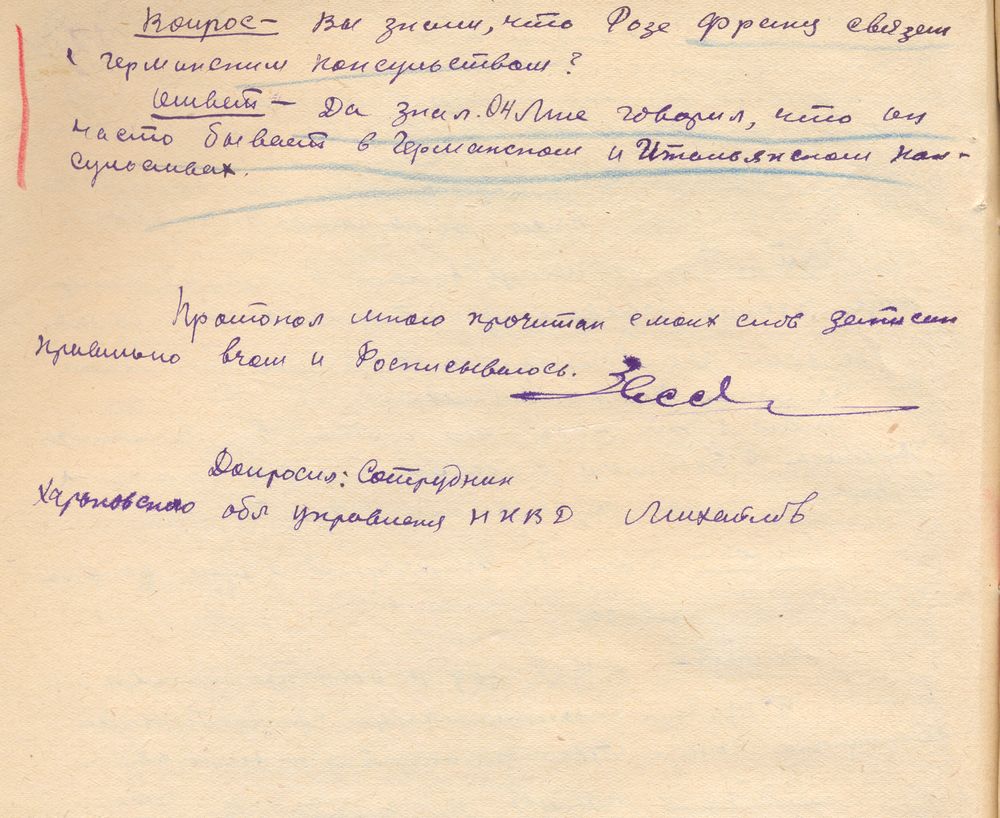 Вопрос – Вы знали, что Розе Франц связан
с германским консульством?
Ответ – Да знал. Он мне говорил, что он
часто бывает в Германском и Итальянском кон-
сульствах.
Протокол мною прочитан с моих слов записан
правильно в чом и Росписываюсь.
Допросил: Сотрудник
Харьковского обл управления НКВД Михайлов